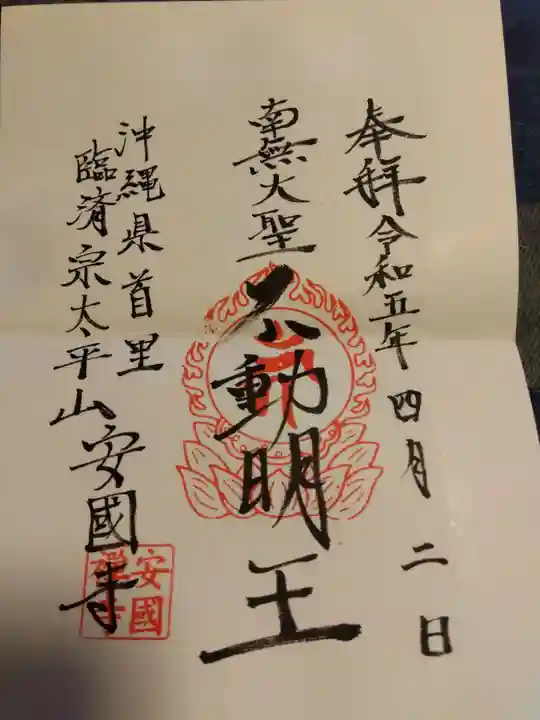 奉拝 令和五年四月二日
南無大聖不動明王
沖縄県首里
臨済宗太平山安國寺
安國
禅寺